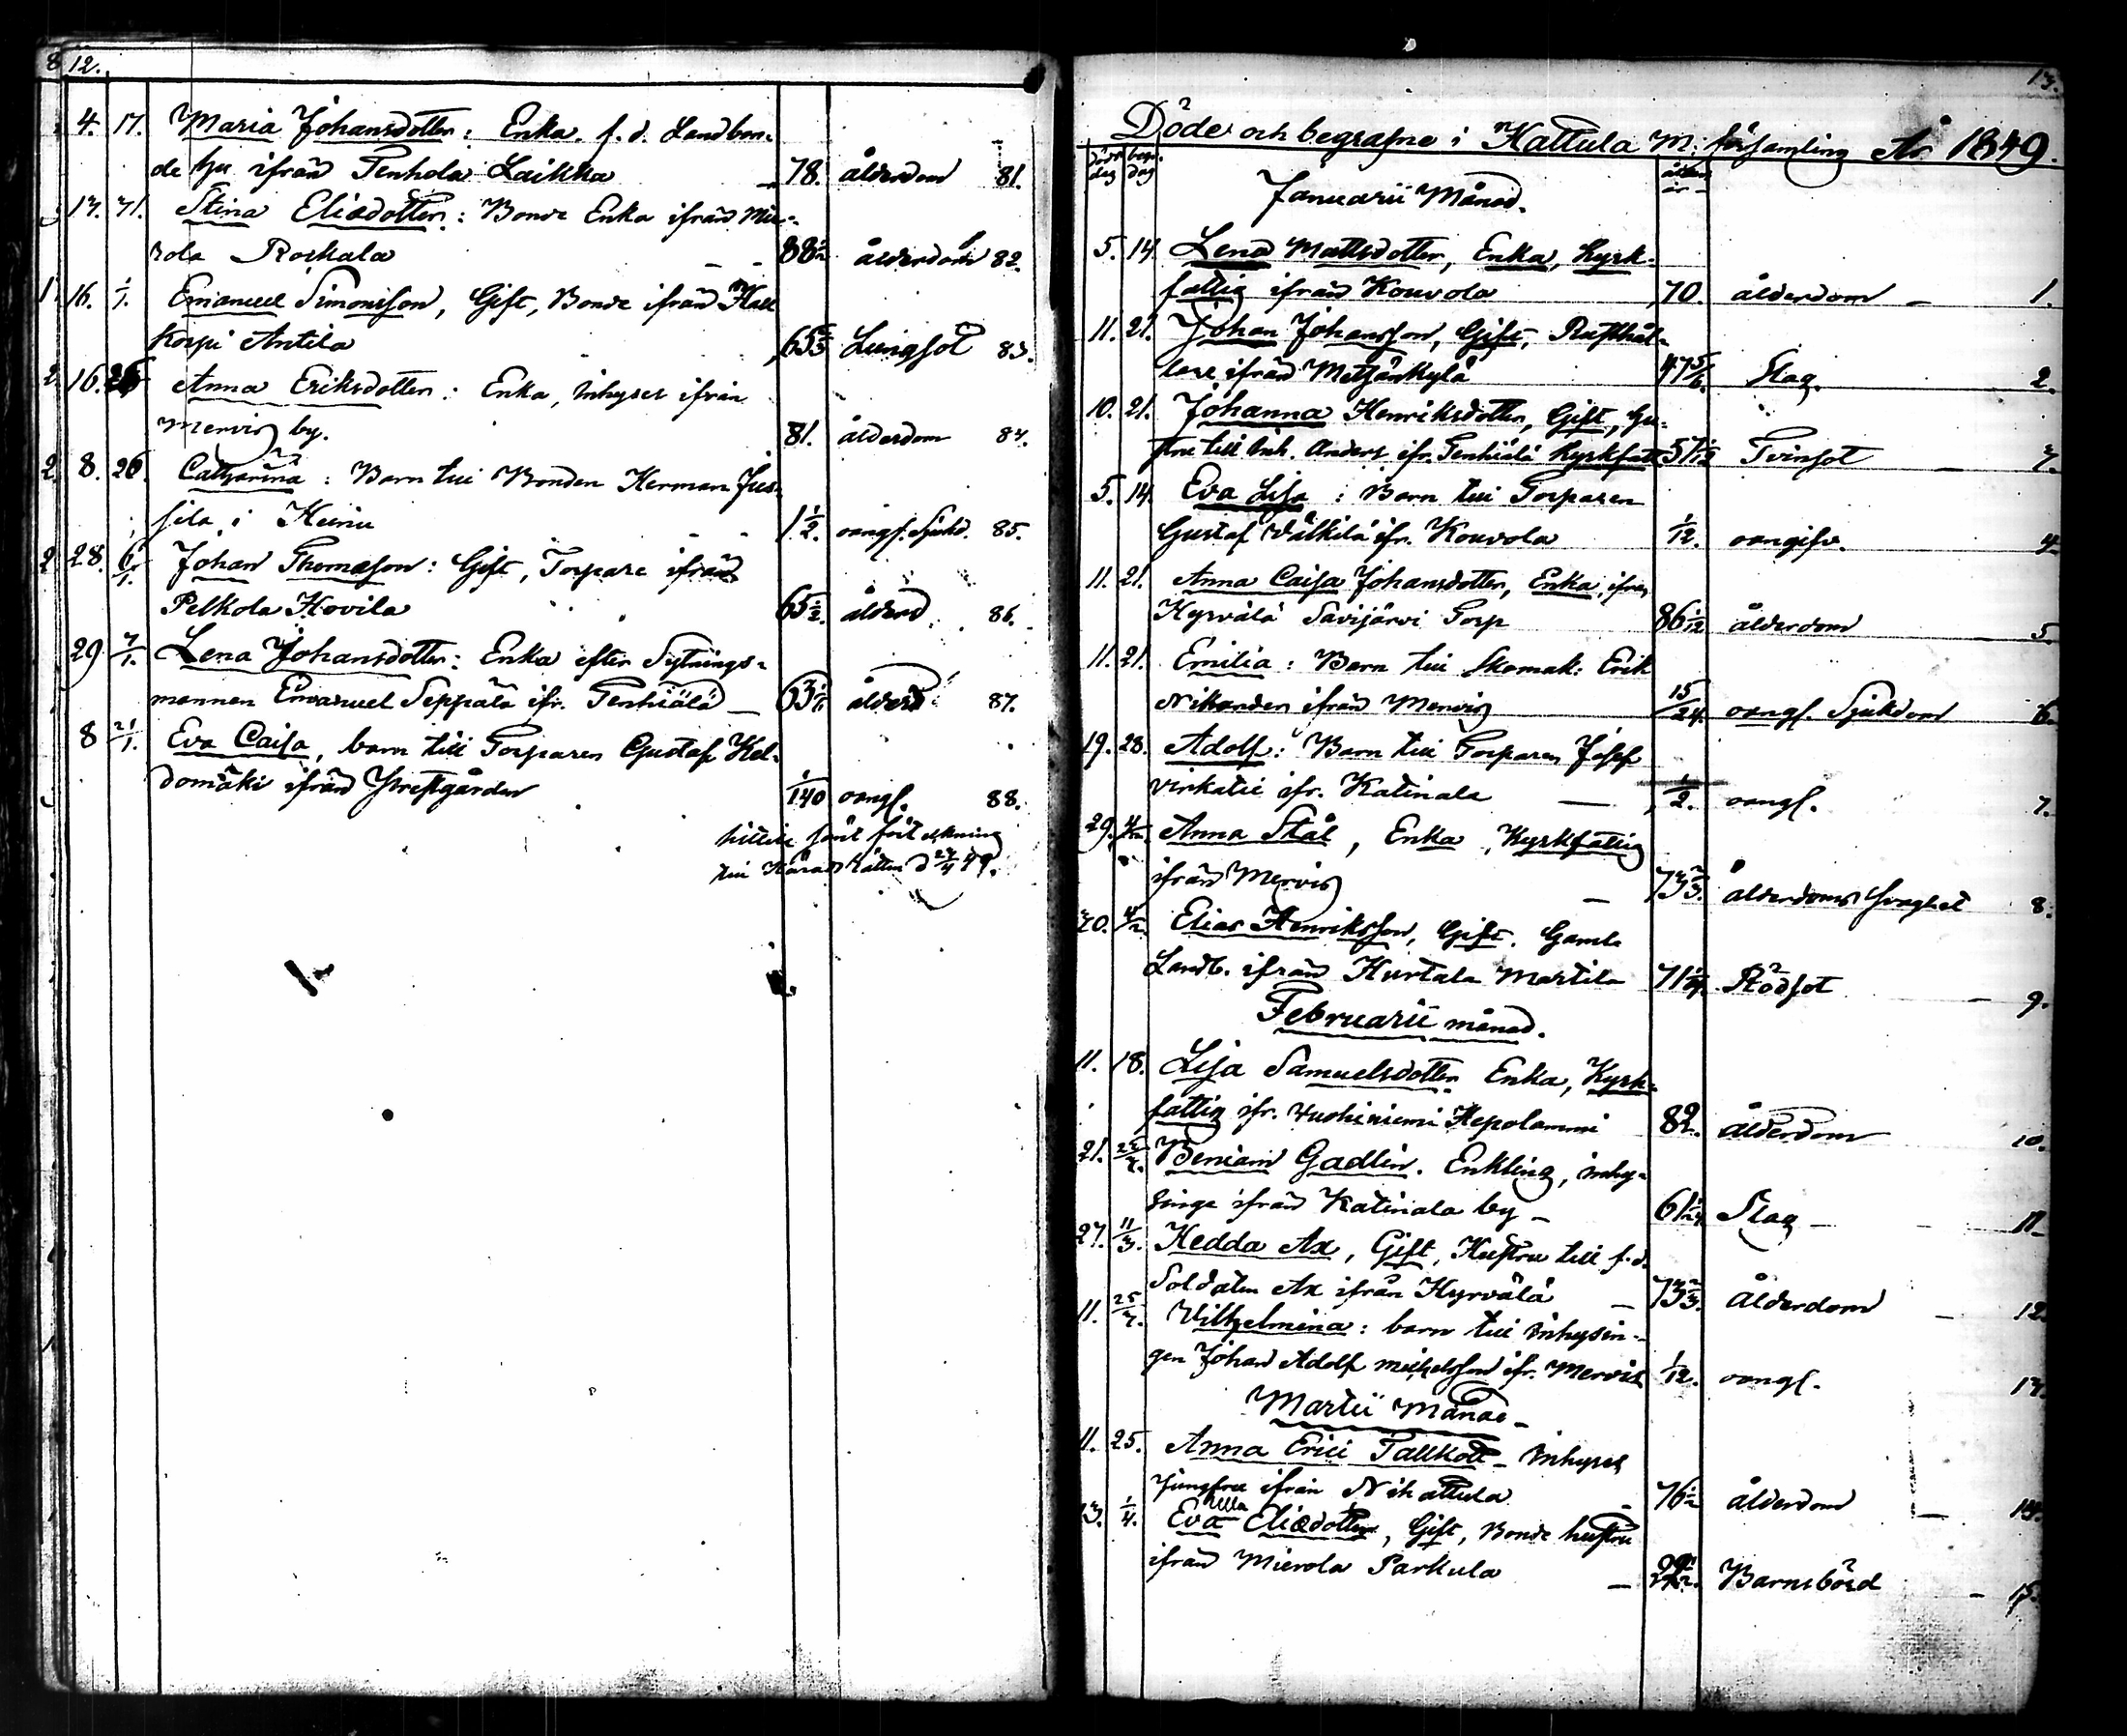 12.
4. 17. Maria Johansdotter: Enka. f. d. Landbon-
de hu ifrån Tenhola Laikka 78. ålderdom 81.
13. 31. Stina Eliædotter: Bonde Enka ifrån Mie-
rola Roskala 88½ ålderdom 82.
16. 1/1. Emanuel Simonsson, Gift, Bonde ifrån
korpi Antila 65 Lungsot 83.
16. 26 Anna Eriksdotter: Enka, inhyses ifrån
Mervis by. 81. ålderdom 84.
8. 26. Catharina: Barn till Bonden Herman Jus-
sila i 1½. oangf. Sjukd. 85.
28. 6/1. Johan Thomasson: Gift, Torpare ifrån
Pelkola Hovila 65½. ålderd. 86.
29 7/1. Lena Johansdotter: Enka efter Sytnings-
mannen Emanuel Seppälä ifr. Tenhiälä 63 ålderd 87.
8 21/1. Eva Caisa, barn till Torparen Gustaf Kel-
domäki ifrån Prestgården 1/140 oangf. 88.
hittils sänt förtekning
till Härads Rätten d 27/4 49.
13.
Döde och begrafne i Hattula M: församling År 1849.
döds dag begr. dag ålder år
Januarii Månad.
5. 14. Lena Mattsdotter, Enka, Kyrk-
fattig ifrån Kouvola 70. ålderdom 1.
11. 21. Johan Johansson, Gift, Rusthål-
lare ifrån Metsänkylä 47 5/6. Slag. 2.
10. 21. Johanna Henriksdotter, Gift, Hu-
stru till Inh. Anders ifr. Tenhiälä Kyrkfatt. 57 1/12 Tvinsot 3.
5. 14. Eva Lisa: Barn till Torparen
Gustaf Välkilä ifr. Kouvola 1/12. oangifv. 4.
11. 21. Anna Caisa Johansdotter, Enka, ifrån
Hyrvälä Savijärvi Torp 86 1/12 ålderdom 5.
11. 21. Emilia: Barn till Skomak: Erik
Nikander ifrån Mervis 15/24. oangf. Sjukdom 6.
19. 28. Adolf: Barn till Torparen Josef
Virkatie ifr. Katinala 1/2. oangf. 7.
29. 4/2. Anna Stål, Enka, Kyrkfattig
ifrån Mervis 73 2/3. ålderdoms svaghet 8.
30. 4/2 Elias Henriksson, Gift. Gamle
Landb. ifrån Hurtala Martila 71 Rödsot 9.
Februarii månad.
11. 18. Lisa Samuelsdotter Enka, Kyrk-
fattig ifr. Vuohiniemi Hepolammi 82. ålderdom 10.
21. 25/3. Beniam Gadlin. Enkling, inhy-
singe ifrån Katinala by 61 Slag 11.
27. 11/3. Hedda Ax, Gift, Hustru till f. d.
Soldaten Ax ifrån Hyrvälä 73 2/3. Ålderdom 12.
11. 25/3. Vilhelmina: barn till Inhysin-
gen Johan Adolf Michelsson ifr. Mervis 1/12. oangf. 13.
Martii Månad
11. 25. Anna Erici Tallkott Inhyses
Jungfru ifrån Nihattula 76½ ålderdom 14.
13. 1/4. Eva Ulla Eliædotter, Gift, Bonde hustru
ifrån Mierola Parkula Barnsbörd 15.